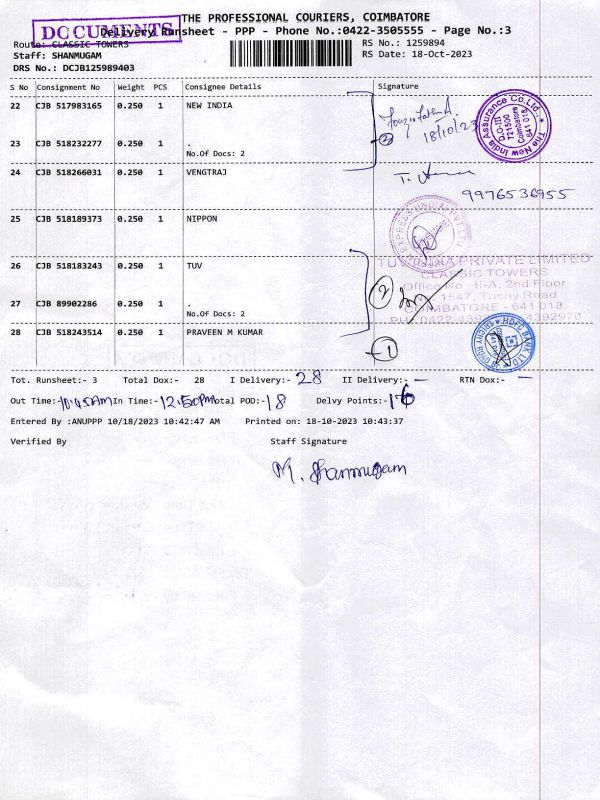 DOCUMENTS
THE PROFESSIONAL COURIERS, COIMBATORE
Delivery Runsheet - PPP - Phone No.:0422-3505555 - Page No.:3
Route: CLASSIC TOWERS
RS No.: 1259894
Staff: SHANMUGAM
RS Date: 18-Oct-2023
DRS No.: DCJB125989403
S No Consignment No Weight PCS Consignee Details Signature
22 CJB 517983165 0.250 1 NEW INDIA
18/10/23
The New India Assurance Co.Ltd.,
D.O-III
721500
Coimbatore
641 018
23 CJB 518232277 0.250 1 .
No.Of Docs: 2
2
24 CJB 518266031 0.250 1 VENGTRAJ
9976536955
25 CJB 518189373 0.250 1 NIPPON
26 CJB 518183243 0.250 1 TUV
PRIVATE LIMITED
CLASSIC TOWERS
Office No. II-A, 2nd Floor
1547, Trichy Road
COIMBATORE - 641 018.
27 CJB 89902286 0.250 1 .
No.Of Docs: 2
2
28 CJB 518243514 0.250 1 PRAVEEN M KUMAR
1
HDFC BANK LTD
Tot. Runsheet:- 3 Total Dox:- 28 I Delivery:- 28 II Delivery:- - RTN Dox:- -
Out Time:- 10.45AM In Time:- 12.50PM Total POD:- 18 Delvy Points:- 16
Entered By :ANUPPP 10/18/2023 10:42:47 AM Printed on: 18-10-2023 10:43:37
Verified By Staff Signature
M. Shanmugam